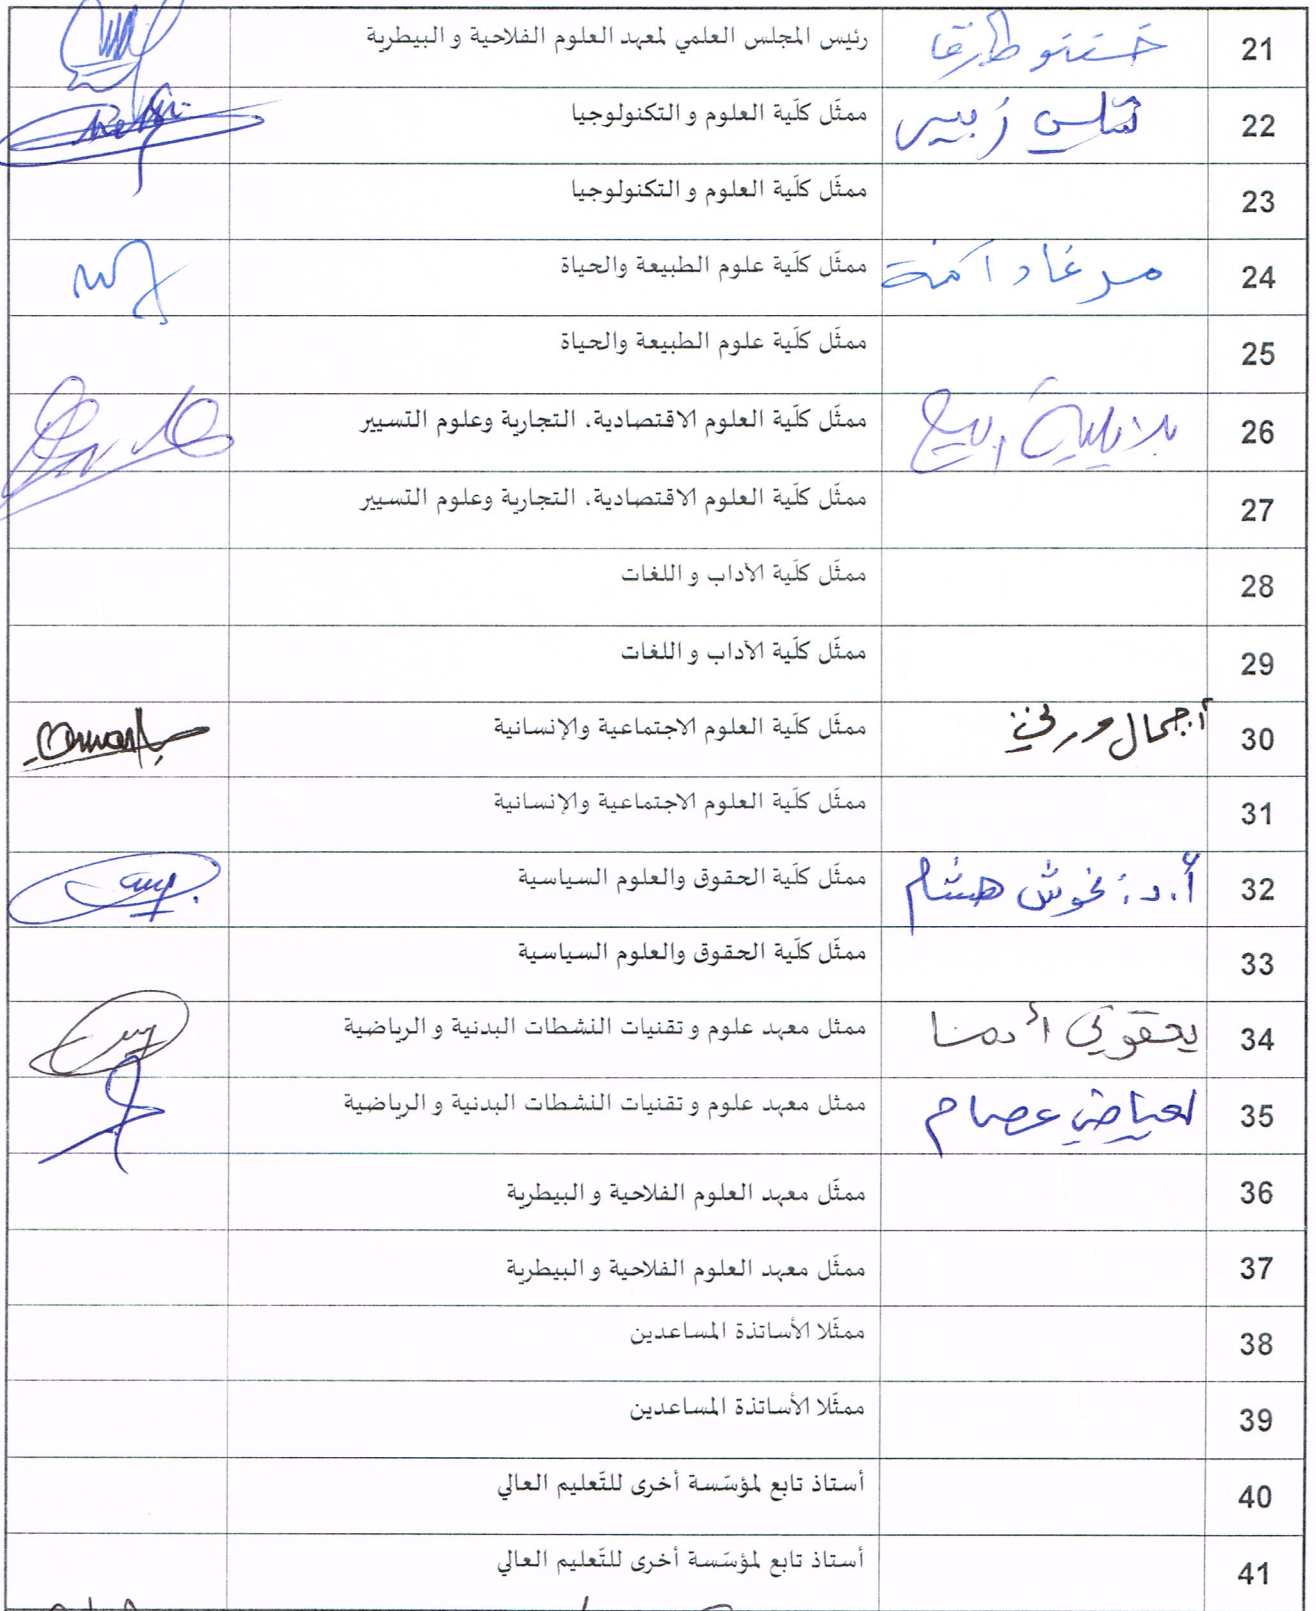 21 خشنو طارق رئيس المجلس العلمي لمعهد العلوم الفلاحية و البيطرية
22 زبير ممثّل كلّية العلوم و التكنولوجيا
23 ممثّل كلّية العلوم و التكنولوجيا
24 مرغاد آمنة ممثّل كلّية علوم الطبيعة والحياة
25 ممثّل كلّية علوم الطبيعة والحياة
26 ممثّل كلّية العلوم الاقتصادية، التجارية وعلوم التسيير
27 ممثّل كلّية العلوم الاقتصادية، التجارية وعلوم التسيير
28 ممثّل كلّية الآداب و اللغات
29 ممثّل كلّية الآداب و اللغات
30 أ.جمال ورفي ممثّل كلّية العلوم الاجتماعية والإنسانية
31 ممثّل كلّية العلوم الاجتماعية والإنسانية
32 أ.د: نخوش هشام ممثّل كلّية الحقوق والعلوم السياسية
33 ممثّل كلّية الحقوق والعلوم السياسية
34 ممثل معهد علوم و تقنيات النشطات البدنية و الرياضية
35 لعياضي عصام ممثل معهد علوم و تقنيات النشطات البدنية و الرياضية
36 ممثّل معهد العلوم الفلاحية و البيطرية
37 ممثّل معهد العلوم الفلاحية و البيطرية
38 ممثّلا الأساتذة المساعدين
39 ممثّلا الأساتذة المساعدين
40 أستاذ تابع لمؤسّسة أخرى للتّعليم العالي
41 أستاذ تابع لمؤسّسة أخرى للتّعليم العالي